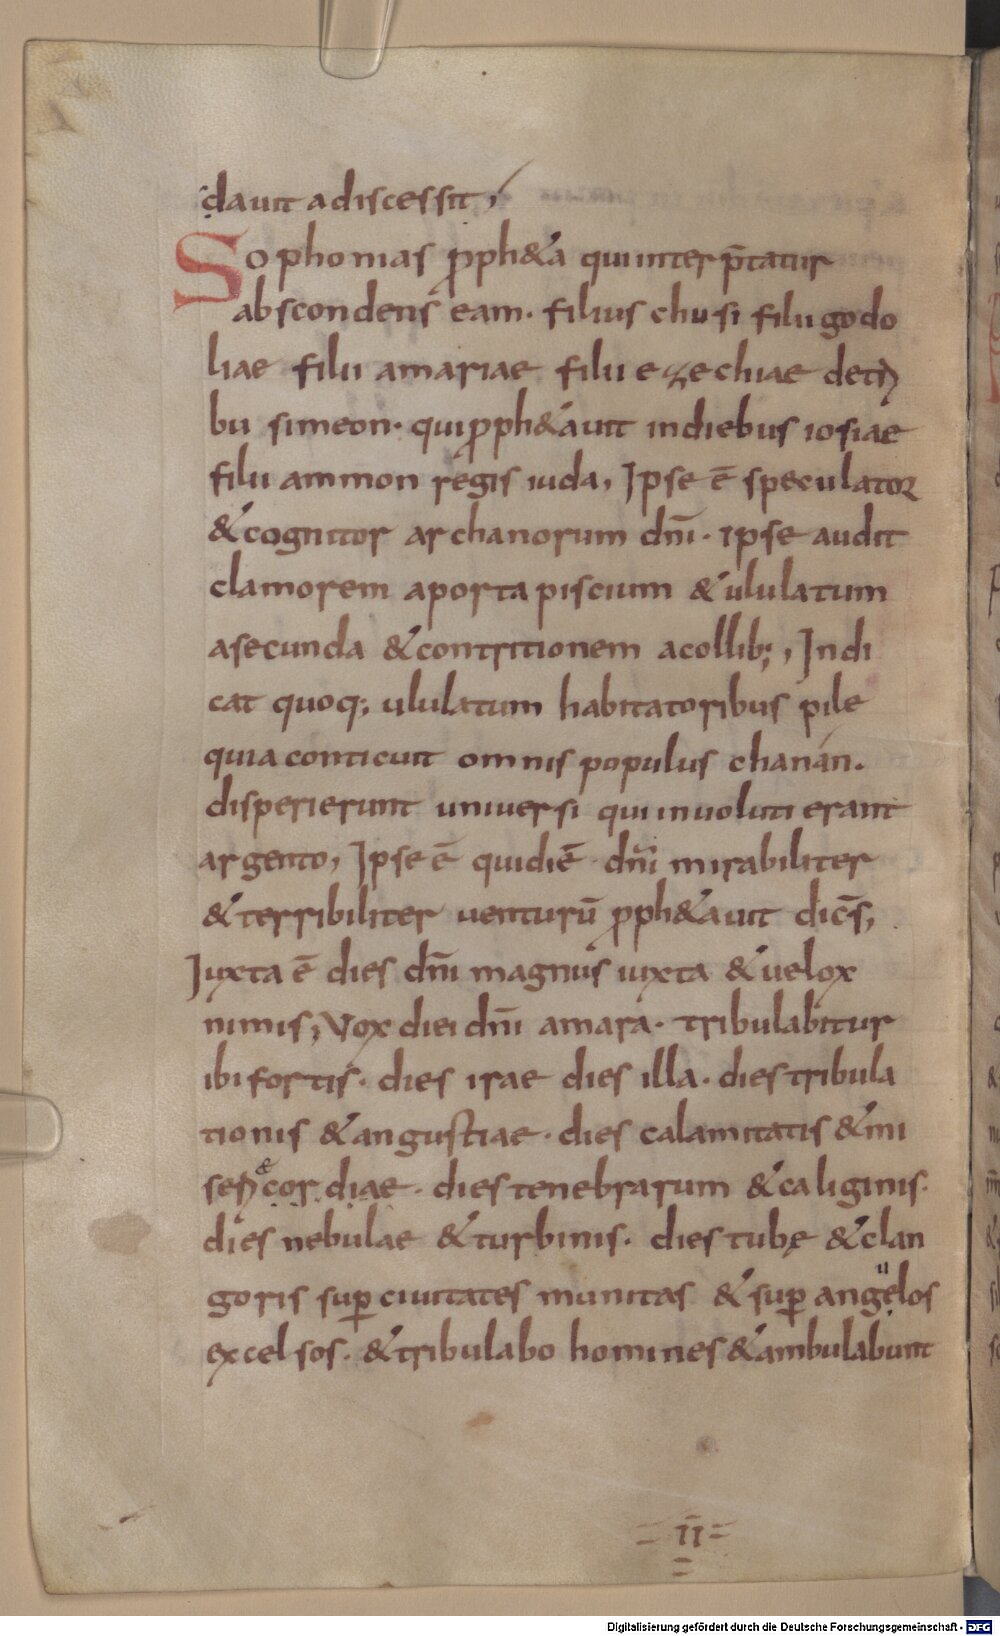 dauit a discessit,
Sophonias p̄ph&a qui interp̄tatur
abscondens eam. filius chusi filii godo
liae filii amariae filii ezechiae de tri
bu simeon. qui p̄ph&auit in diebus iosiae
filii ammon regis iuda, Ipse ē speculator
& cognitor archanorum dn̄i. ipse audit
clamorem a porta piscium & ululatum
a secunda & contritionem a collib;, Indi
cat quoq; ululatum habitatoribus pile
quia conticuit omnis populus chanán.
disperierunt uniuersi qui inuoluti erant
argento, Ipse ē qui diē dn̄i mirabiliter
& terribiliter uenturū p̄ph&auit dicēs,
Iuxta ē dies dn̄i magnus iuxta & uelox
nimis, Vox diei dn̄i amara. tribulabitur
ibi fortis. dies irae dies illa. dies tribula
tionis & angustiae. dies calamitatis & mi
sericordiae. dies tenebrarum & caliginis.
dies nebulae & turbinis. dies tubę & clan
goris sup ciuitates munitas & sup angelos
excelsos. & tribulabo homines & ambulabunt
II
Digitalisierung gefördert durch die Deutsche Forschungsgemeinschaft - DFG